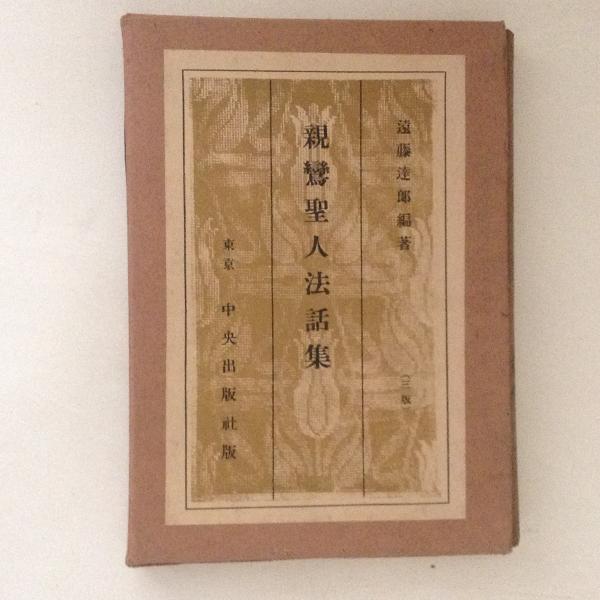 遠藤達郎編著
（三版）
親鸞聖人法話集
東京 中央出版社版